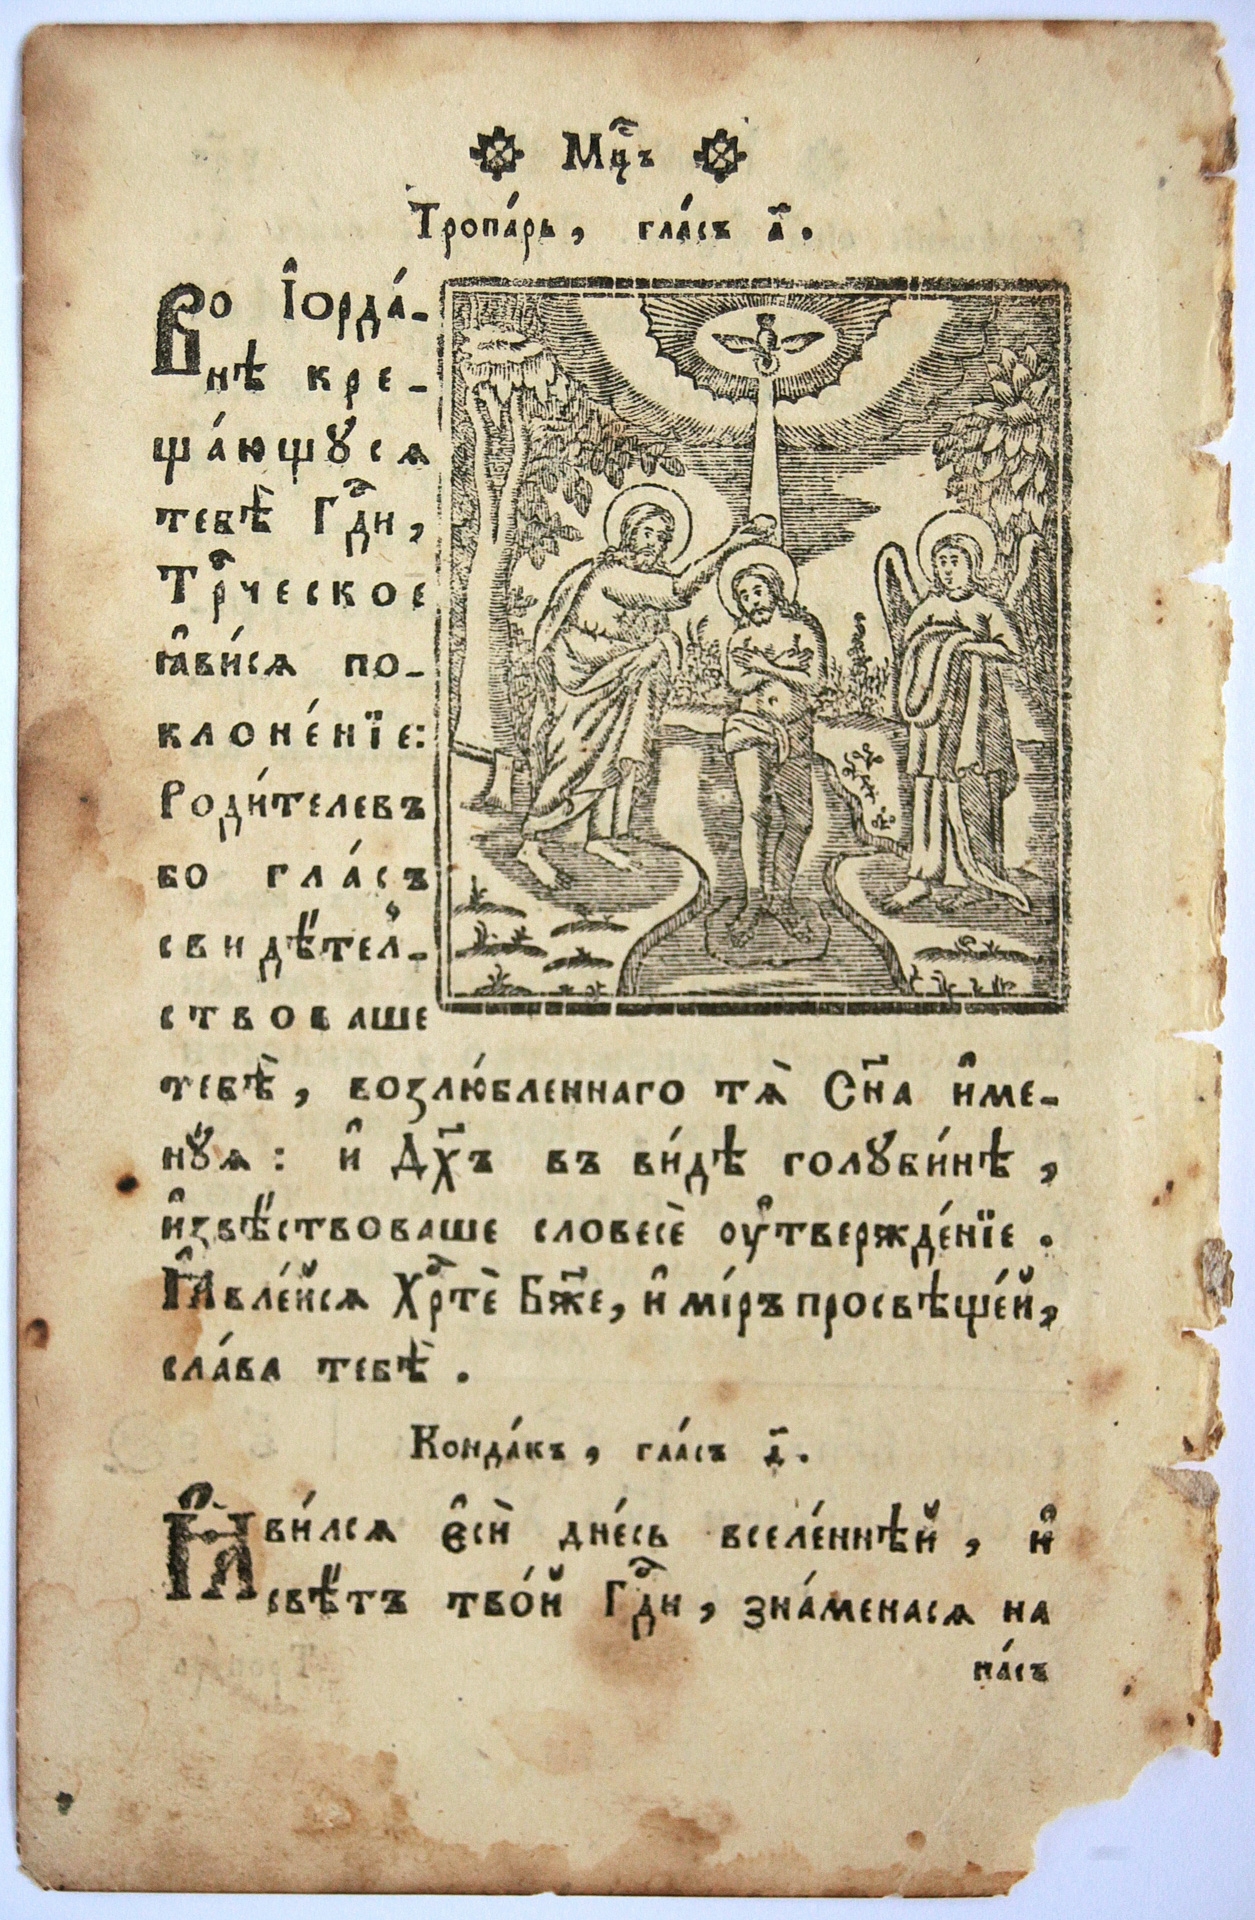 Мц҃ъ
Тропа́рь, гла́съ а҃.
Во І҆орда́-
нѣ кре-
ща́ющꙋсѧ
тебѣ̀ Гдⷭ҇и,
Трⷪ҇ческое
ꙗ҆ви́сѧ по-
клоне́нїе:
Роди́телевъ
бо гла́съ
свидѣ́тел̾-
ствоваше
тебѣ̀, возлю́бленнаго тѧ̀ Сн҃а и҆ме-
нꙋ́ѧ: и҆ Дх҃ъ въ ви́дѣ голꙋби́нѣ,
и҆звѣ́ствоваше словесѐ оу҆твержде́нїе.
Ꙗ҆вле́йсѧ Хрⷭ҇тѐ Бж҃е, и҆ мі́ръ просвѣще́й,
сла́ва тебѣ̀.
Конда́къ, гла́съ д҃.
Ꙗ҆ви́лсѧ є҆сѝ дне́сь вселе́ннѣй, и҆
свѣ́тъ тво́й Гдⷭ҇и, зна́менасѧ на
на́съ